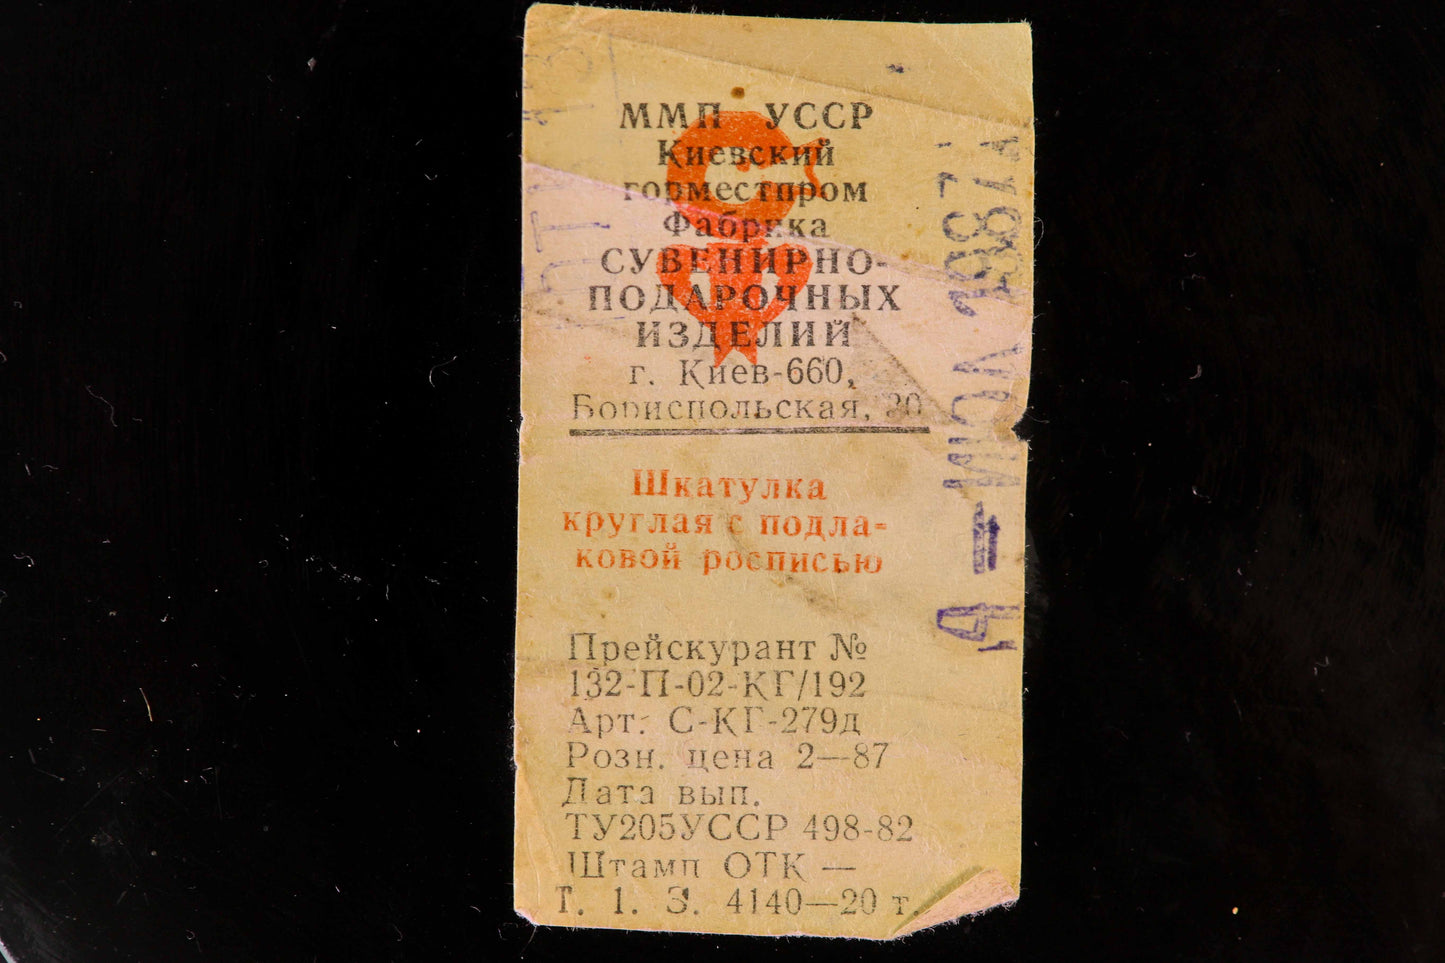 ММП УССР
Киевский
горместпром
Фабрика
СУВЕНИРНО-
ПОДАРОЧНЫХ
ИЗДЕЛИЙ
г. Киев-660,
Бориспольская, 20
Шкатулка
круглая с подла-
ковой росписью
Прейскурант №
132-П-02-КГ/192
Арт. С-КГ-279д
Розн. цена 2—87
Дата вып.
ТУ205УССР 498-82
Штамп ОТК —
Т. 1. З. 4140—20 т.
ИЮЛ 1987